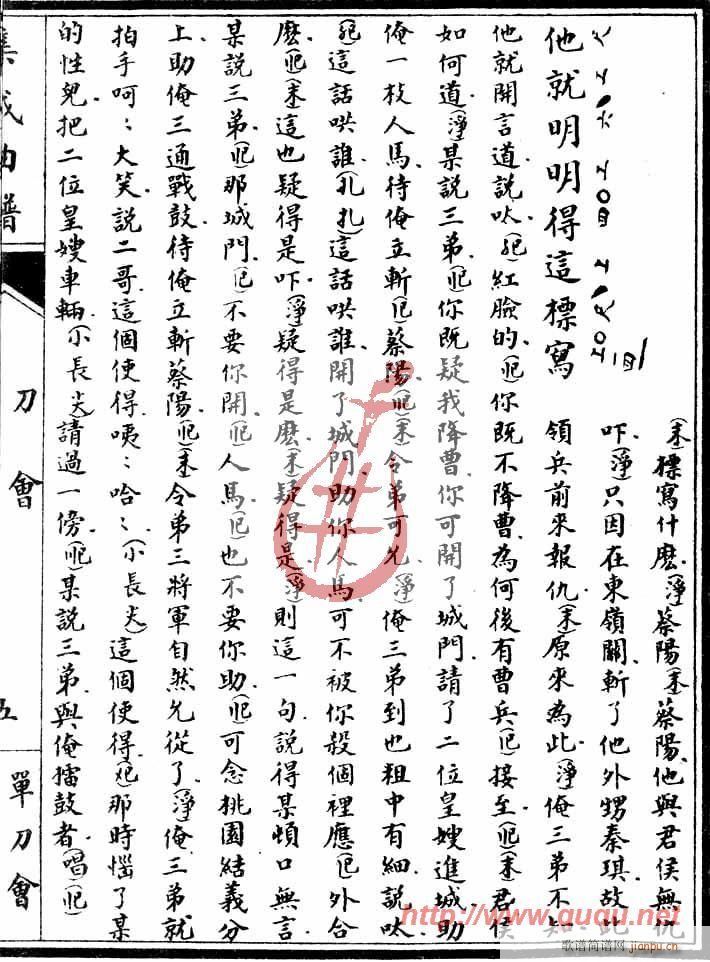 (末)標寫什麽(淨)蔡陽(末)蔡陽他與君侯無仇
吓(淨)只因在東嶺關斬了他外甥秦琪故此
他就明明得這標寫領兵前來報仇(末)原來為此(淨)俺三弟不知
他就開言道說呔紅臉的你既不降曹為何後有曹兵接至(末)君侯
如何道(淨)某說三弟你既疑我降曹你可開了城門請了二位皇嫂進城助
俺一枝人馬待俺立斬蔡陽(末)令弟可允(淨)俺三弟到也粗中有細說呔
這話哄誰這話哄誰開了城門助你人馬可不被你殺個裡應外合
麽(末)這也疑得是吓(淨)疑得是麽(末)疑得是(淨)則這一句說得某頓口無言
某說三弟那城門不要你開人馬也不要你助可念桃園結義分
上助俺三通戰鼓待俺立斬蔡陽(末)令弟三將軍自然允從了(淨)俺三弟就
拍手呵ミ大笑說二哥這個使得咦ミ哈ミ(小長尖)這個使得那時惱了某
的性兒把二位皇嫂車輛(小長尖)請過一傍某說三弟與俺擂鼓者(唱)
集成曲譜
刀會
五
單刀會
http://www.ququ.net
歌谱简谱网
jianpu.cn